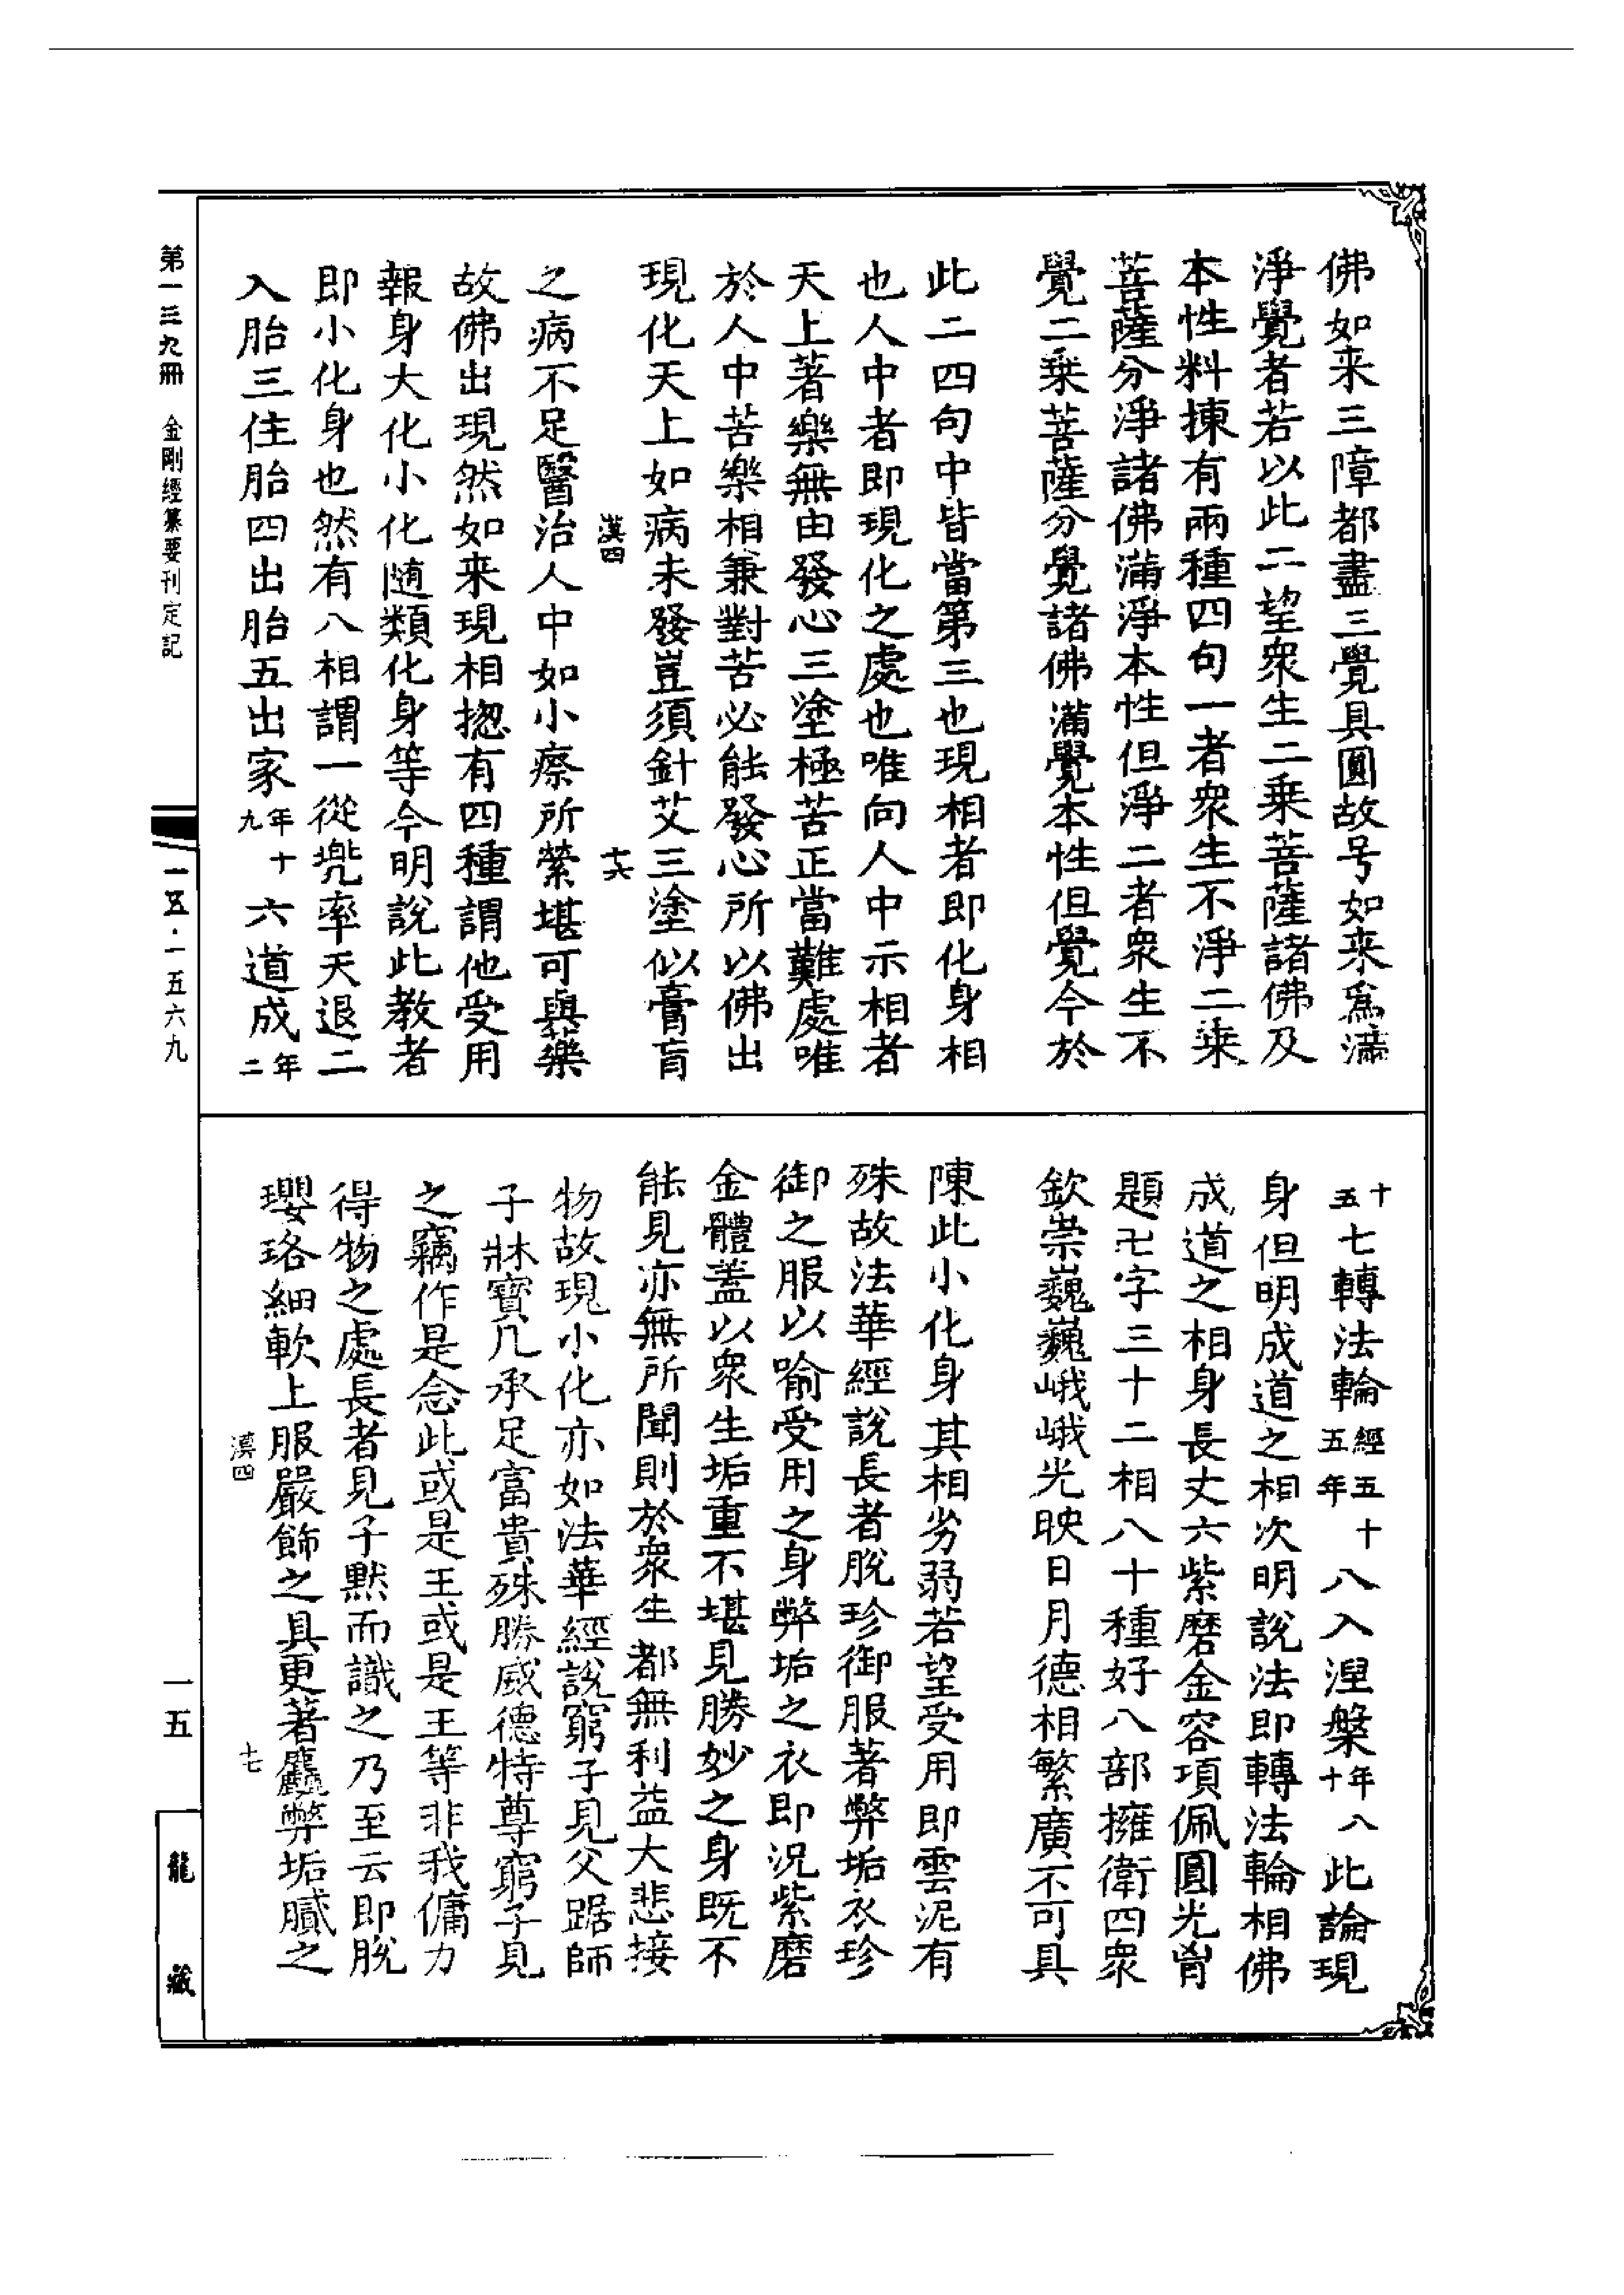 佛如来三障都盡三覺具圓故号如来爲滿
淨覺者若以此二望衆生二乗菩薩諸佛及
本性料揀有兩種四句一者衆生不淨二乗
菩薩分淨諸佛滿淨本性但淨二者衆生不
覺二乗菩薩分覺諸佛滿覺本性但覺今於
此二四句中皆當第三也現相者即化身相
也人中者即現化之處也唯向人中示相者
天上著樂無由發心三塗極苦正當難處唯
於人中苦樂相兼對苦必能發心所以佛出
現化天上如病未發豈須針艾三塗似膏肓
漢四
十六
之病不足醫治人中如小瘵所縈堪可與藥
故佛出現然如来現相揔有四種謂他受用
報身大化小化随類化身等今明說此教者
即小化身也然有八相謂一從兠率天退二
入胎三住胎四出胎五出家年十九六道成年二
第一三九冊
金剛經纂要刊定記
一五·一五六九
十五七轉法輪經五十五年八入涅槃年八十此論現
身但明成道之相次明說法即轉法輪相佛
成道之相身長丈六紫磨金容項佩圓光胷
題卍字三十二相八十種好八部擁衛四衆
欽崇巍巍峨峨光映日月德相繁廣不可具
陳此小化身其相劣弱若望受用即雲泥有
殊故法華經說長者脫珍御服著弊垢衣珍
御之服以喻受用之身弊垢之衣即況紫磨
金體蓋以衆生垢重不堪見勝妙之身既不
能見亦無所聞則於衆生都無利益大悲接
物故現小化亦如法華經說窮子見父踞師
子牀寶几承足富貴殊勝威德特尊窮子見
之竊作是念此或是王或是王等非我傭力
得物之處長者見子黙而識之乃至云即脫
瓔珞細軟上服嚴飾之具更著麤弊垢膩之
漢四
十七
一五
龍藏